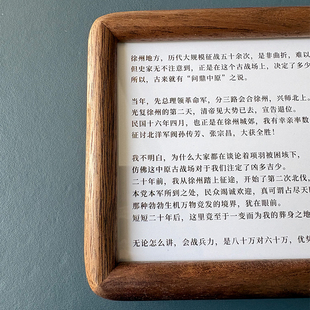 徐州地方，历代大规模征战五十余次，是非曲折，难以
但史家无不注意到，正是在这个古战场上，决定了多少
所以，古来就有“问鼎中原”之说。
当年，先总理领革命军，分三路会合徐州，兴师北上。
光复徐州的第二天，清帝见大势已去，宣告退位。
民国十六年四月，也正是在徐州城郊，我有幸亲率数
征讨北洋军阀孙传芳、张宗昌，大获全胜！
我不明白，为什么大家都在谈论着项羽被困垓下，
仿佛这中原古战场对于我们注定了凶多吉少。
二十年前，我从徐州踏上征途，开始了第二次北伐，
本党本军所到之处，民众竭诚欢迎，真可谓占尽天
那种勃勃生机万物竞发的境界，犹在眼前。
短短二十年后，这里竟至于一变而为我的葬身之地
无论怎么讲，会战兵力，是八十万对六十万，优势